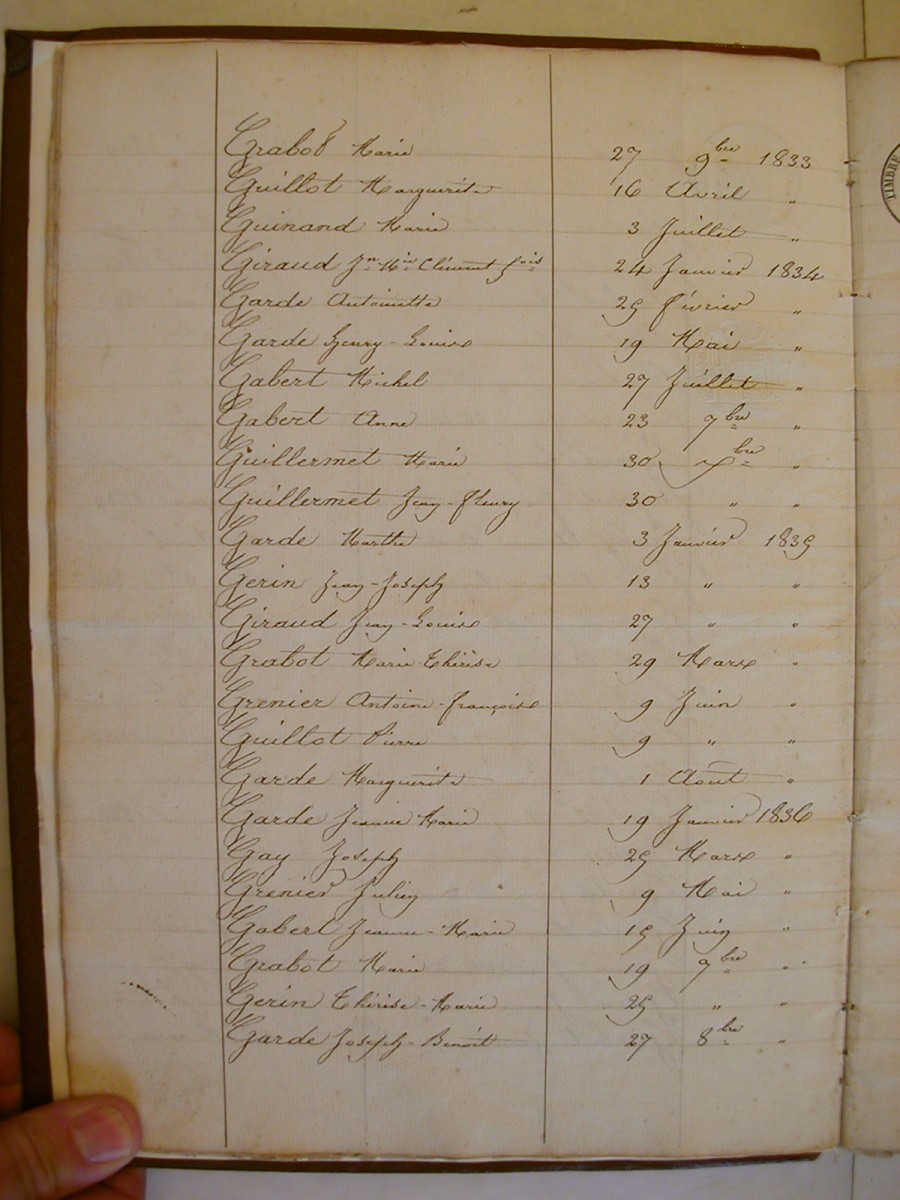 Grabot Marie 27 9bre 1833
Guillot Marguerite 16 Avril "
Guinand Marie 3 Juillet "
Giraud Jn Mie Clément fois 24 Janvier 1834
Garde Antoinette 25 février "
Garde Henry-Louise 19 Mai "
Gabert Michel 27 Juillet "
Gabert Anne 23 7bre "
Guillermet Marie 30 7bre "
Guillermet Jean-fleury 30 " "
Garde Marthe 3 Janvier 1835
Gerin Jean-Joseph 13 " "
Giraud Jean-Louise 27 " "
Grabot Marie-Thérèse 29 Mars "
Grenier Antoine-françoise 9 Juin "
Guillot Pierre 9 " "
Garde Marguerite 1 Août "
Garde Jeanne Marie 19 Janvier 1836
Gay Joseph 25 Mars "
Grenier Julien 9 Mai "
Gabert Jeanne-Marie 15 Juin "
Grabot Marie 19 7bre "
Gerin Thérèse-Marie 25 " "
Garde Joseph-Benoît 27 8bre "
TIMBRE